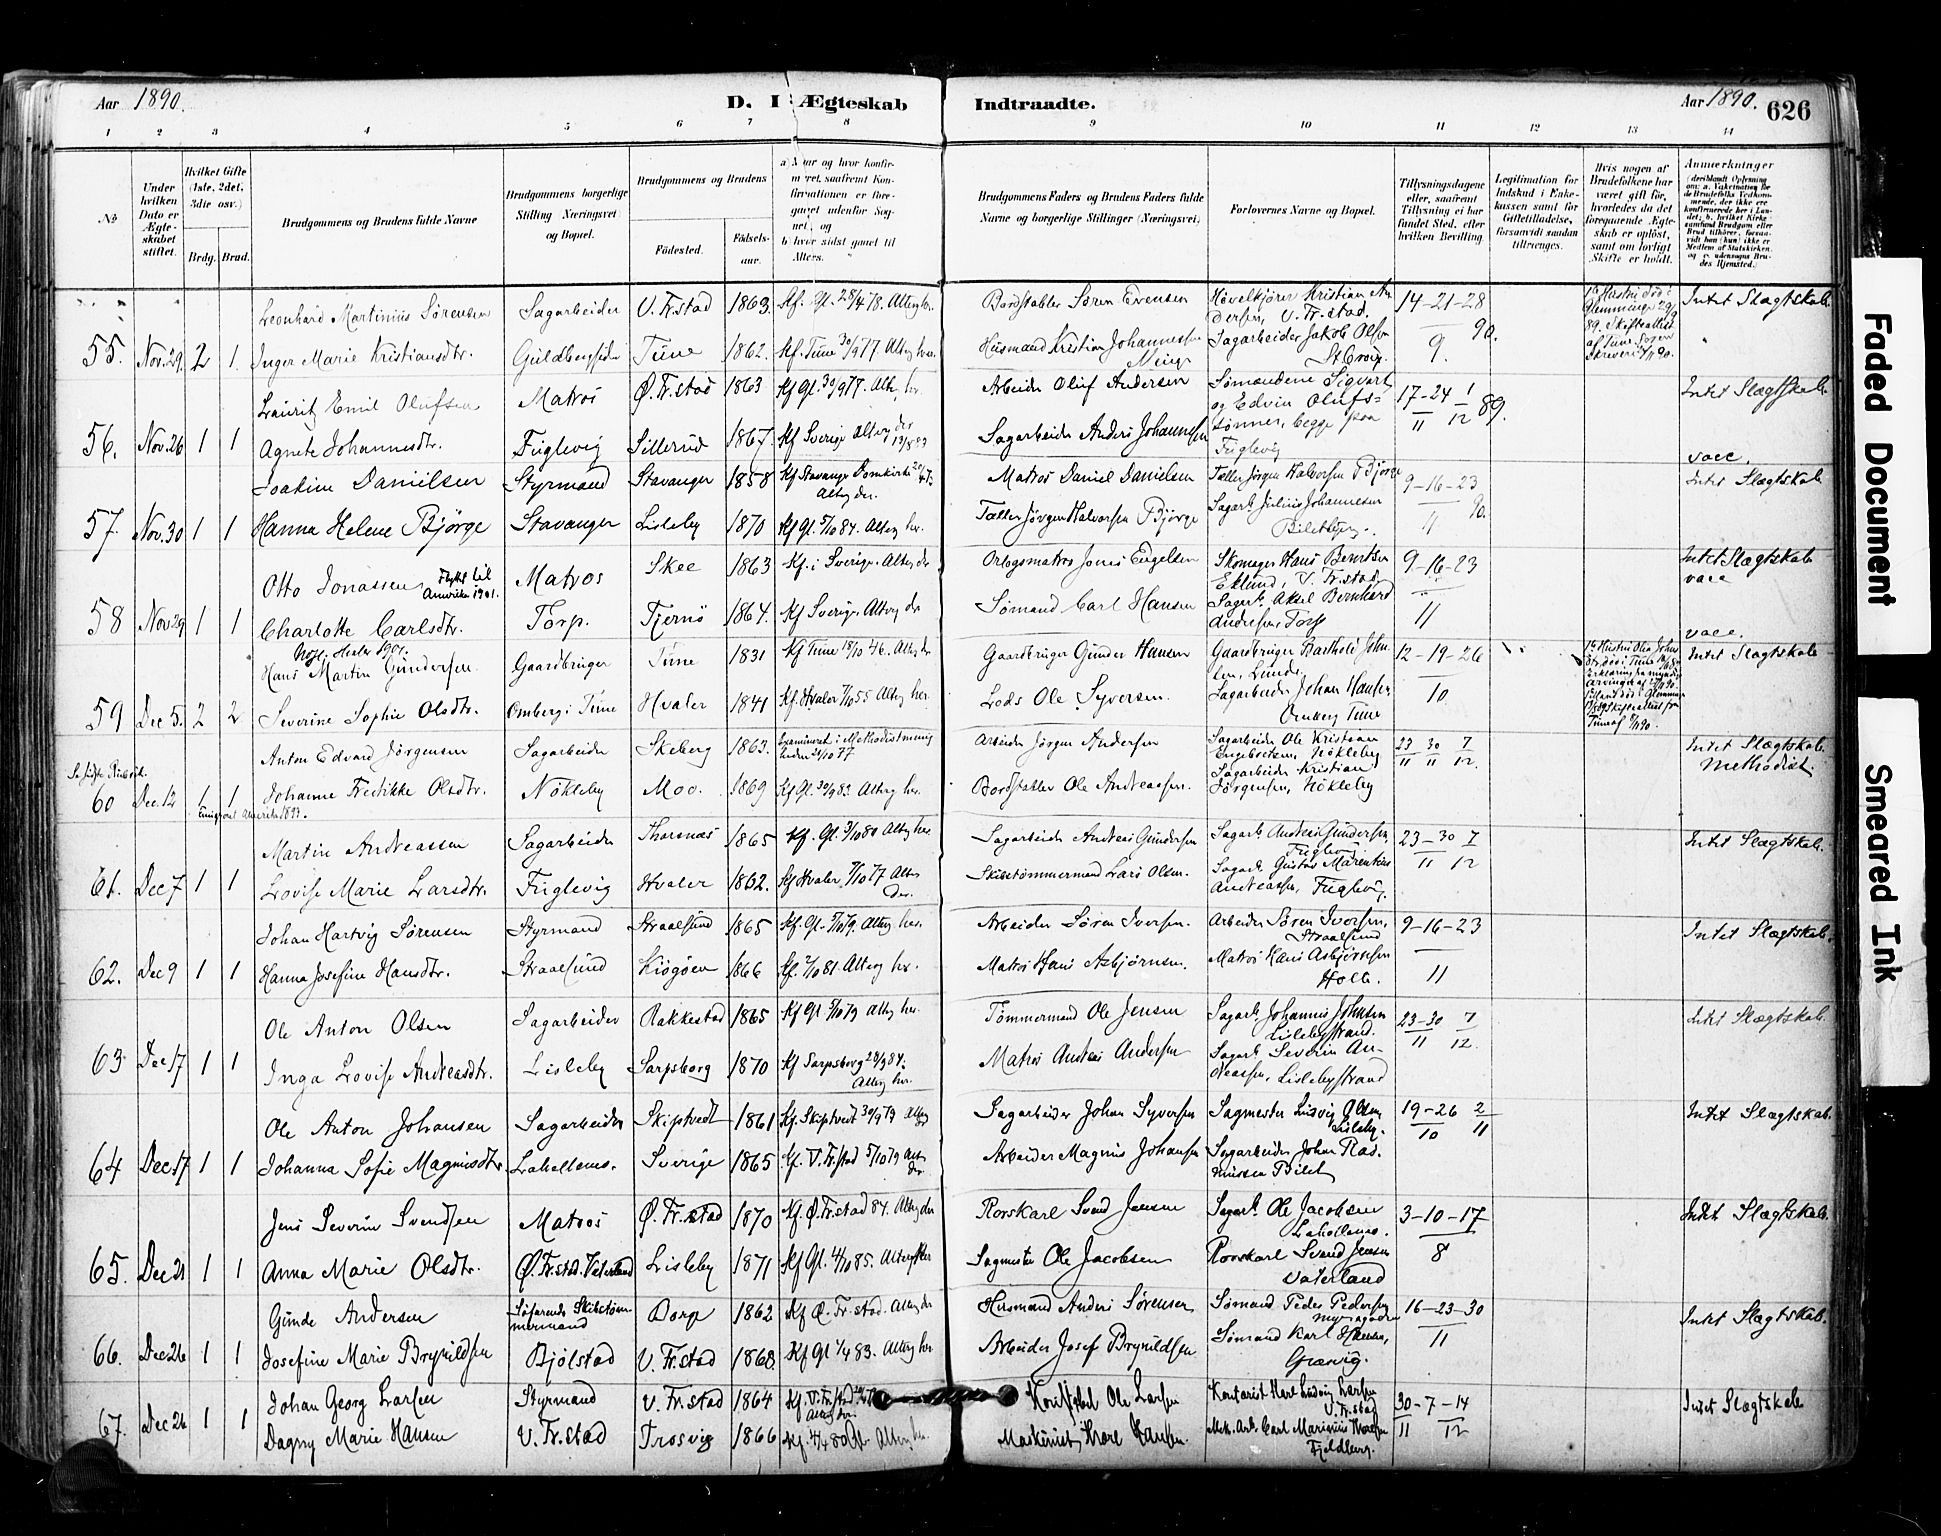 Aar 1890.
D. I Ægteskab Indtraadte.
Aar 1890. 626
1 2 3 4 5 6 7 8 9 10 11 12 13 14
No
Under hvilken Dato er Ægteskabet stiftet.
Hvilket Gifte (1ste, 2det, 3die osv.)
Brdg. Brud.
Brudgommens og Brudens fulde Navne
Brudgommens borgerlige Stilling (Næringsvei) og Bopæl.
Brudgommens og Brudens
Fødested. Fødselsaar.
Brudgommens Faders og Brudens Faders fulde Navne og borgerlige Stillinger (Næringsvei)
Forlovernes Navne og Bopæl.
Tillysningsdagene eller, saafremt Tillysning ei har fundet Sted, efter hvilken Bevilling.
Legitimation for Indskud i Enkekassen samt for Giftetilladelse, forsaavidt saadan tiltrænges.
Hvis nogen af Brudefolkene har været gift før, hvorledes da det foregaaende Ægteskab er opløst, samt om lovligt Skifte er holdt.
Anmerkninger
Leonhard Martinius Sørensen Sagarbeider V. Fr.stad 1863. Kf. Gl. 28/4 78. Alterg. her. Bordstabler Søren Evensen Høvelkjører Kristian Andersen, V. Fr.stad. 14-21-28 Intet Slægtskab
55. Nov. 29. 2 1. Inger Marie Kristiansdtr. Guldbergsiden Tune 1862. Kf. Tune 30/9 77. Alterg. her. Husmand Kristian Johannessen Sagarbeider Jakob Olsen 9. 90.
Lauritz Emil Olufsen Matros Ø. Fr.stad 1863 Kf Gl. 30/9 77. Alterg. her Arbeider Oluf Andersen Sømændene Sigvart og Edvin Olufssønner, begge fra Fuglevig 17-24 1 11 12 89. Intet Slægtskab
56. Nov. 26 1 1 Agnete Johannesdtr. Fuglevig Sillerud 1867. Kf Sverige Alterg. der Sagarbeider Anders Johannesen vacc.
Joakim Danielsen Styrmand Stavanger 1858 Kf Stavanger Domkirke Alterg der. Matros Daniel Danielsen Tæller Jørgen Halvorsen Bjørge 9-16-23 Intet Slægtskab
57. Nov. 30 1 1 Hanna Helene Bjørge Stavanger Lisleby 1870 Kf Gl. 5/10 84. Alterg her. Tæller Jørgen Halvorsen Bjørge Sagarb. Julius Johannesen 11 90.
Otto Jonassen Flyttet til Amerika 1901. Matros Skee 1863 Kf. i Sverige. Alterg der Orlogsmatros Jonas Engelsen Skomager Hans Berntsen Eklund, V. Fr.stad 9-16-23 Intet Slægtskab vacc
58 Nov. 29 1 1 Charlotte Carlsdtr. Torp. Tjernö 1864. Kf Sverige, Alterg der Sømand Carl Hansen Sagarb. Aksel Bernhard Andresen, Torp 11 vacc.
Hans Martin Gundersen Gaardbruger Tune 1831 Kf Tune 18/10 46. Alterg der Gaardbruger Gunder Hansen Gaardbruger Barthold Johnsen, Lunde 12-19-26 Intet Slægtskab
59 Dec 5. 2 2 Severine Sophie Olsdtr. Omberg i Tune Hvaler 1841 Kf. Hvaler 7/10 55 Alterg her. Lods Ole Syversen. Sagarbeider Johan Hansen Omberg Tune 10
Anton Edvard Jørgensen Sagarbeider Skeberg 1863. Arbeider Jørgen Andersen Sagarbeider Ole Kristian Engebretsen, Nökleby 23 30 7 11 11 12 Intet Slægtskab Methodist.
60 Dec. 12 1 1 Johanne Fredrikke Olsdtr. Nökleby Moo. 1869 Kf Gl. 30/9 83. Alterg her. Bordstabler Ole Andreassen. Sagarbeider Kristian Jørgensen, Nökleby
Emigreret Amerika 1893.
Martin Andreassen Sagarbeider Thorsnæs 1865 Kf. Gl. 3/10 80 Alterg her. Sagarbeider Andreas Gundersen Sagarb. Andreas Gundersen, Fuglevig 23-30 7 11 12 Intet Slægtskab.
61. Dec 7 1 1 Lovise Marie Larsdtr. Fuglevig Hvaler 1862. Kf Hvaler, 7/10 77 Alterg der. Skibstømmermand Lars Olsen. Sagarb. Gustav Marentius Andreassen, Fuglevig.
Johan Hartvig Sørensen Styrmand Straalsund 1865 Kf. Gl. 5/10 79. Alterg. her. Arbeider Søren Iversen. Arbeider Søren Iversen, Straalsund 9-16-23 Intet Slægtskab.
62. Dec 9 1 1 Hanna Josefine Hansdtr. Straalsund Kiøgøen 1866 Kf. 2/10 81. Alterg her. Matros Hans Asbjørnsen. Matros Hans Asbjørnsen Holte. 11
Ole Anton Olsen Sagarbeider Rakkestad 1865 Kf Gl 5/10 79 Alterg her. Tømmermand Ole Jensen Sagarb. Johannes Johnsen Lislebystrand. 23-30 7 11 12. Intet Slægtskab.
63 Dec 17 1 1 Inga Lovise Andreasdtr. Lisleby Sarpsborg 1870 Kf Sarpsborg 28/9 84. Alterg her. Matros Andreas Andersen Sagarb Severin Andreassen, Lislebystrand
Ole Anton Johansen Sagarbeider Skiptvedt 1861 Kf. Skiptvedt 30/9 79 Alterg Sagarbeider Johan Syversen Sagmester Ludvig Olsen, Lisleby. 19-26 2 10 11 Intet Slægtskab.
64 Dec. 17 1 1 Johanna Sofie Magnusdtr. Lahellemo. Sverige 1865 Kf. V. Fr.stad 5/10 79 Alterg der. Arbeider Magnus Johansen Sagarbeider Johan Rasmussen Bilet
Jens Severin Svendsen Matros Ø. Fr.stad 1870 Kf. Ø. Fr.stad 84. Alterg der Rorskarl Svend Jensen Sagarb. Ole Jacobsen Lahellemo. 3-10-17 Intet Slægtskab.
65. Dec 21 1 1 Anna Marie Olsdtr. Ø. Fr.stad. Vaterland Lisleby 1871 Kf Gl. 4/10 85. Sagmester Ole Jacobsen Rorskarl Svend Jensen Vaterland 8
Gunde Andersen Søfarende Skibstømmermand Borge 1862 Kf Ø. Fr.stad. Alterg der Husmand Anders Sørensen Sømand Peder Pedersen 16-23-30 Intet Slægtskab.
66. Dec 26 1 1 Josefine Marie Brynildsen Bjølstad V. Fr.stad 1868 Kf Gl 1/4 83. Alterg her Arbeider Josef Brynildsen Sømand Karl Græsvig. 11
Johan Georg Larsen Styrmand V. Fr.stad 1864 Kf. V. Fr.stad Alterg der Ole Larsen Kontorist Karl Ludvig Larsen V. Fr.stad 30-7-14 Intet Slægtskab
67. Dec 26 1 1 Dagny Marie Hansen V. Fr.stad Trosvig 1866 Kf. 4/4 80 Gl. Alterg her. Maskinist Hans Hansen. Mek. Arb. Carl Marinius Fjeldberg. 11 12
Faded Document
Smeared Ink